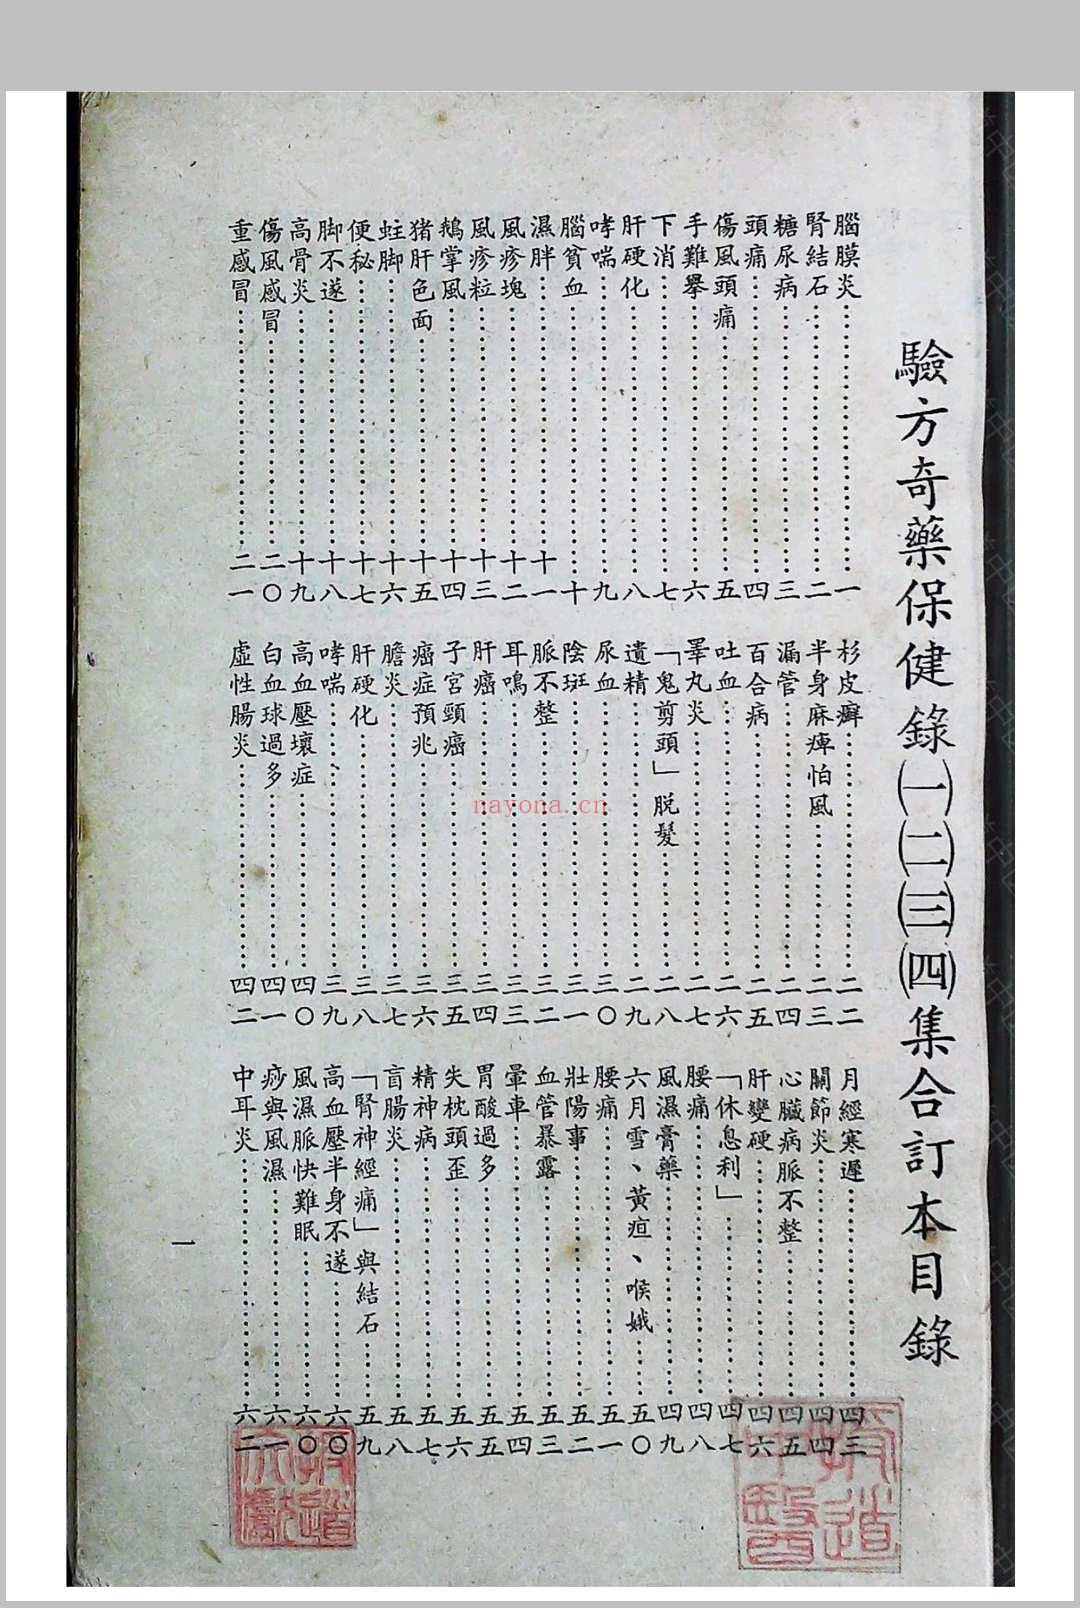 驗方奇藥保健錄㈠㈡㈢㈣集合訂本目錄
腦膜炎……一
腎結石……二
糖尿病……三
頭痛……四
傷風頭痛……五
手難擧……六
下消……七
肝硬化……八
哮喘……九
腦貧血……十
濕胖……十一
風疹塊……十二
風疹粒……十三
鵝掌風……十四
猪肝色面……十五
蛀脚……十六
便秘……十七
脚不遂……十八
高骨炎……十九
傷風感冒……二〇
重感冒……二一
杉皮癬……二二
半身麻痺怕風……二三
漏管……二四
百合病……二五
吐血……二六
睪丸炎……二七
「鬼剪頭」脱髮……二八
遺精……二九
尿血……三〇
陰斑……三一
脈不整……三二
耳鳴……三三
肝癌……三四
子宮頸癌……三五
癌症預兆……三六
膽炎……三七
肝硬化……三八
哮喘……三九
高血壓壞症……四〇
白血球過多……四一
虛性腸炎……四二
月經寒遲……四三
關節炎……四四
心臟病脈不整……四五
肝變硬……四六
「休息利」……四七
腰痛……四八
風濕膏藥……四九
六月雪、黃疸、喉蛾……五〇
腰痛……五一
壯陽事……五二
血管暴露……五三
暈車……五四
胃酸過多……五五
失枕頭歪……五六
精神病……五七
盲腸炎……五八
「腎神經痛」與結石……五九
高血壓半身不遂……六〇
風濕脈快難眠……六〇
痧與風濕……六一
中耳炎……六二
一
nayona.cn